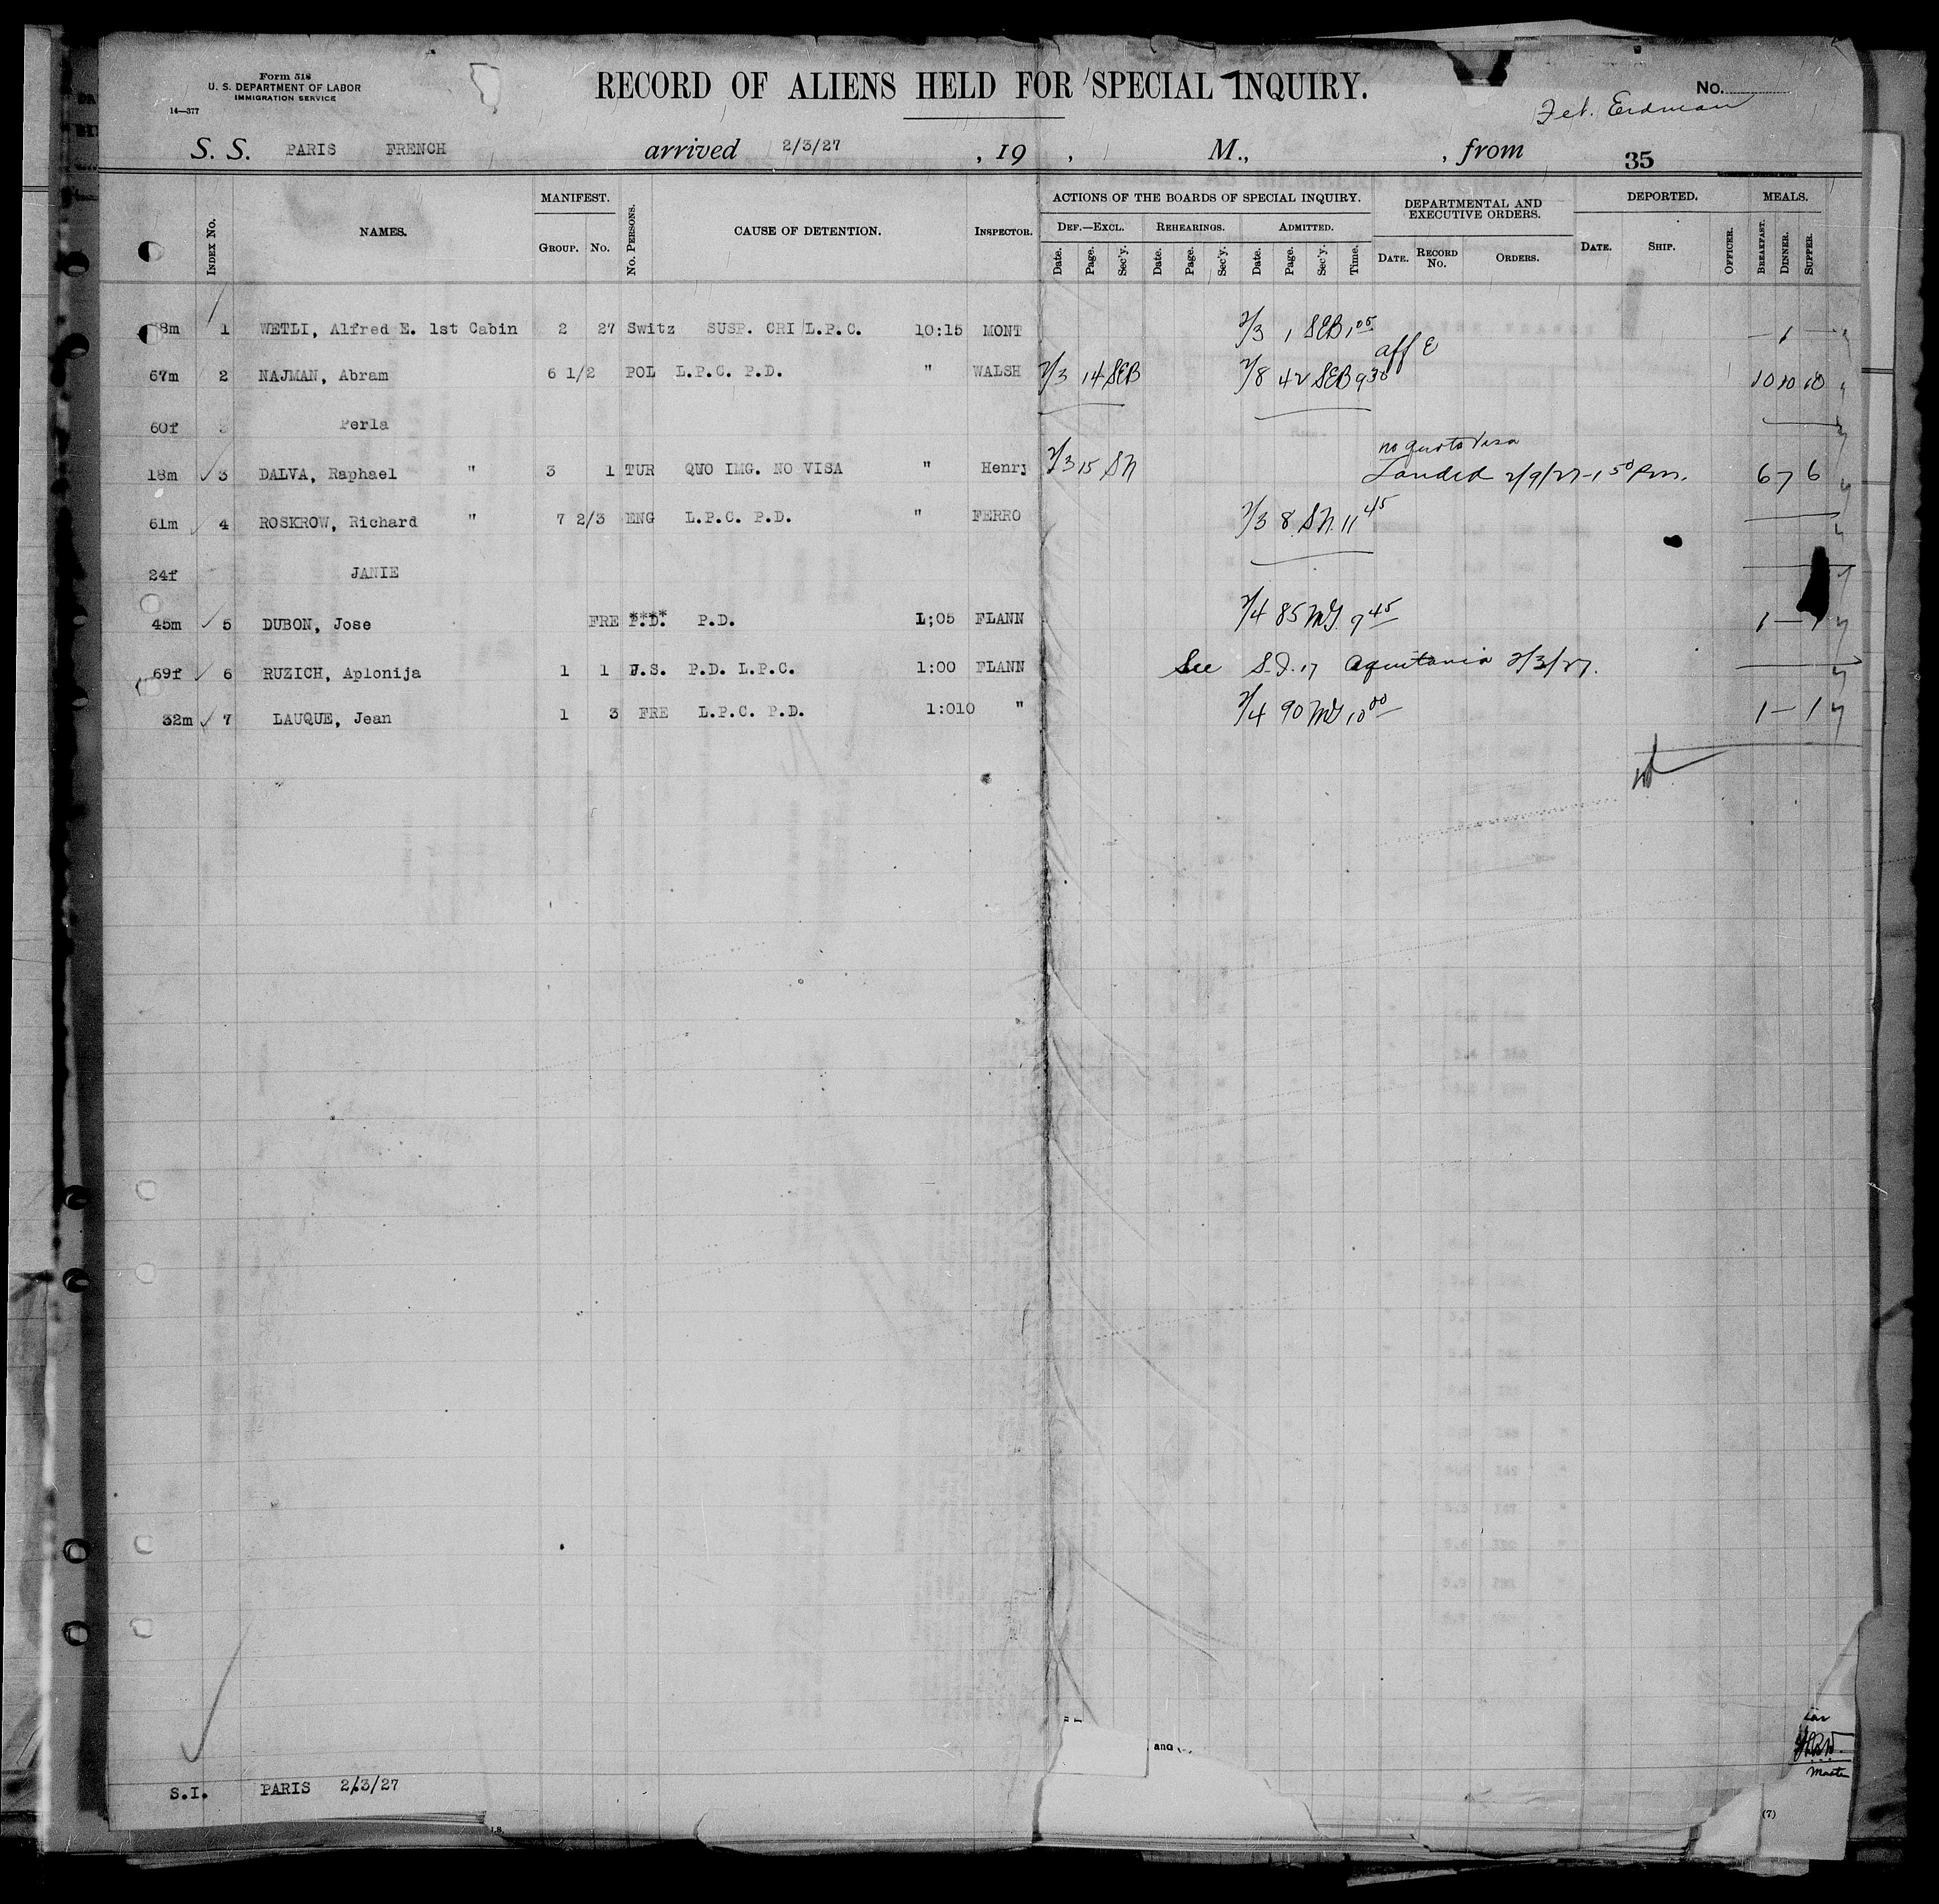 Form 518
U. S. DEPARTMENT OF LABOR
IMMIGRATION SERVICE
14—377
RECORD OF ALIENS HELD FOR SPECIAL INQUIRY.
No.
Erdman
S. S. PARIS FRENCH arrived 2/3/27 , 19 , M., , from 35
INDEX No. NAMES. MANIFEST. GROUP. No. No. PERSONS. CAUSE OF DETENTION. INSPECTOR. ACTIONS OF THE BOARDS OF SPECIAL INQUIRY. DEF.—EXCL. Date. Page. Sec'y. REHEARINGS. Date. Page. Sec'y. ADMITTED. Date. Page. Sec'y. Time. DEPARTMENTAL AND EXECUTIVE ORDERS. DATE. RECORD No. ORDERS. DEPORTED. DATE. SHIP. OFFICER. MEALS. BREAKFAST. DINNER. SUPPER.
8m 1 WETLI, Alfred E. 1st Cabin 2 27 Switz SUSP. CRI L.P.C. 10:15 MONT 2/3 1 SEB 1 05 — 1 —
aff E
67m 2 NAJMAN, Abram 6 1/2 POL L.P.C. P.D. " WALSH 2/3 14 SEB 2/8 42 SEB 9 30 10 10 10
60f Perla
no quota Visa
18m 3 DALVA, Raphael " 3 1 TUR QUO IMG. NO VISA " Henry 2/3 15 SN Landed 2/9/27-1 50 Pm. 6 7 6
61m 4 ROSKROW, Richard " 7 2/3 ENG L.P.C. P.D. " FERRO 2/3 8 SN. 11 45
24f JANIE
45m 5 DUBON, Jose FRE P.D. P.D. L;05 FLANN 2/4 85 MG. 9 45 1 — 1
69f 6 RUZICH, Aplonija 1 1 J.S. P.D. L.P.C. 1:00 FLANN See S.I. 17 Aquitania 2/3/27.
32m 7 LAUQUE, Jean 1 3 FRE L.P.C. P.D. 1:010 " 2/4 90 MG 10 00 1 — 1
and
Master
S.I. PARIS 2/3/27
(7)